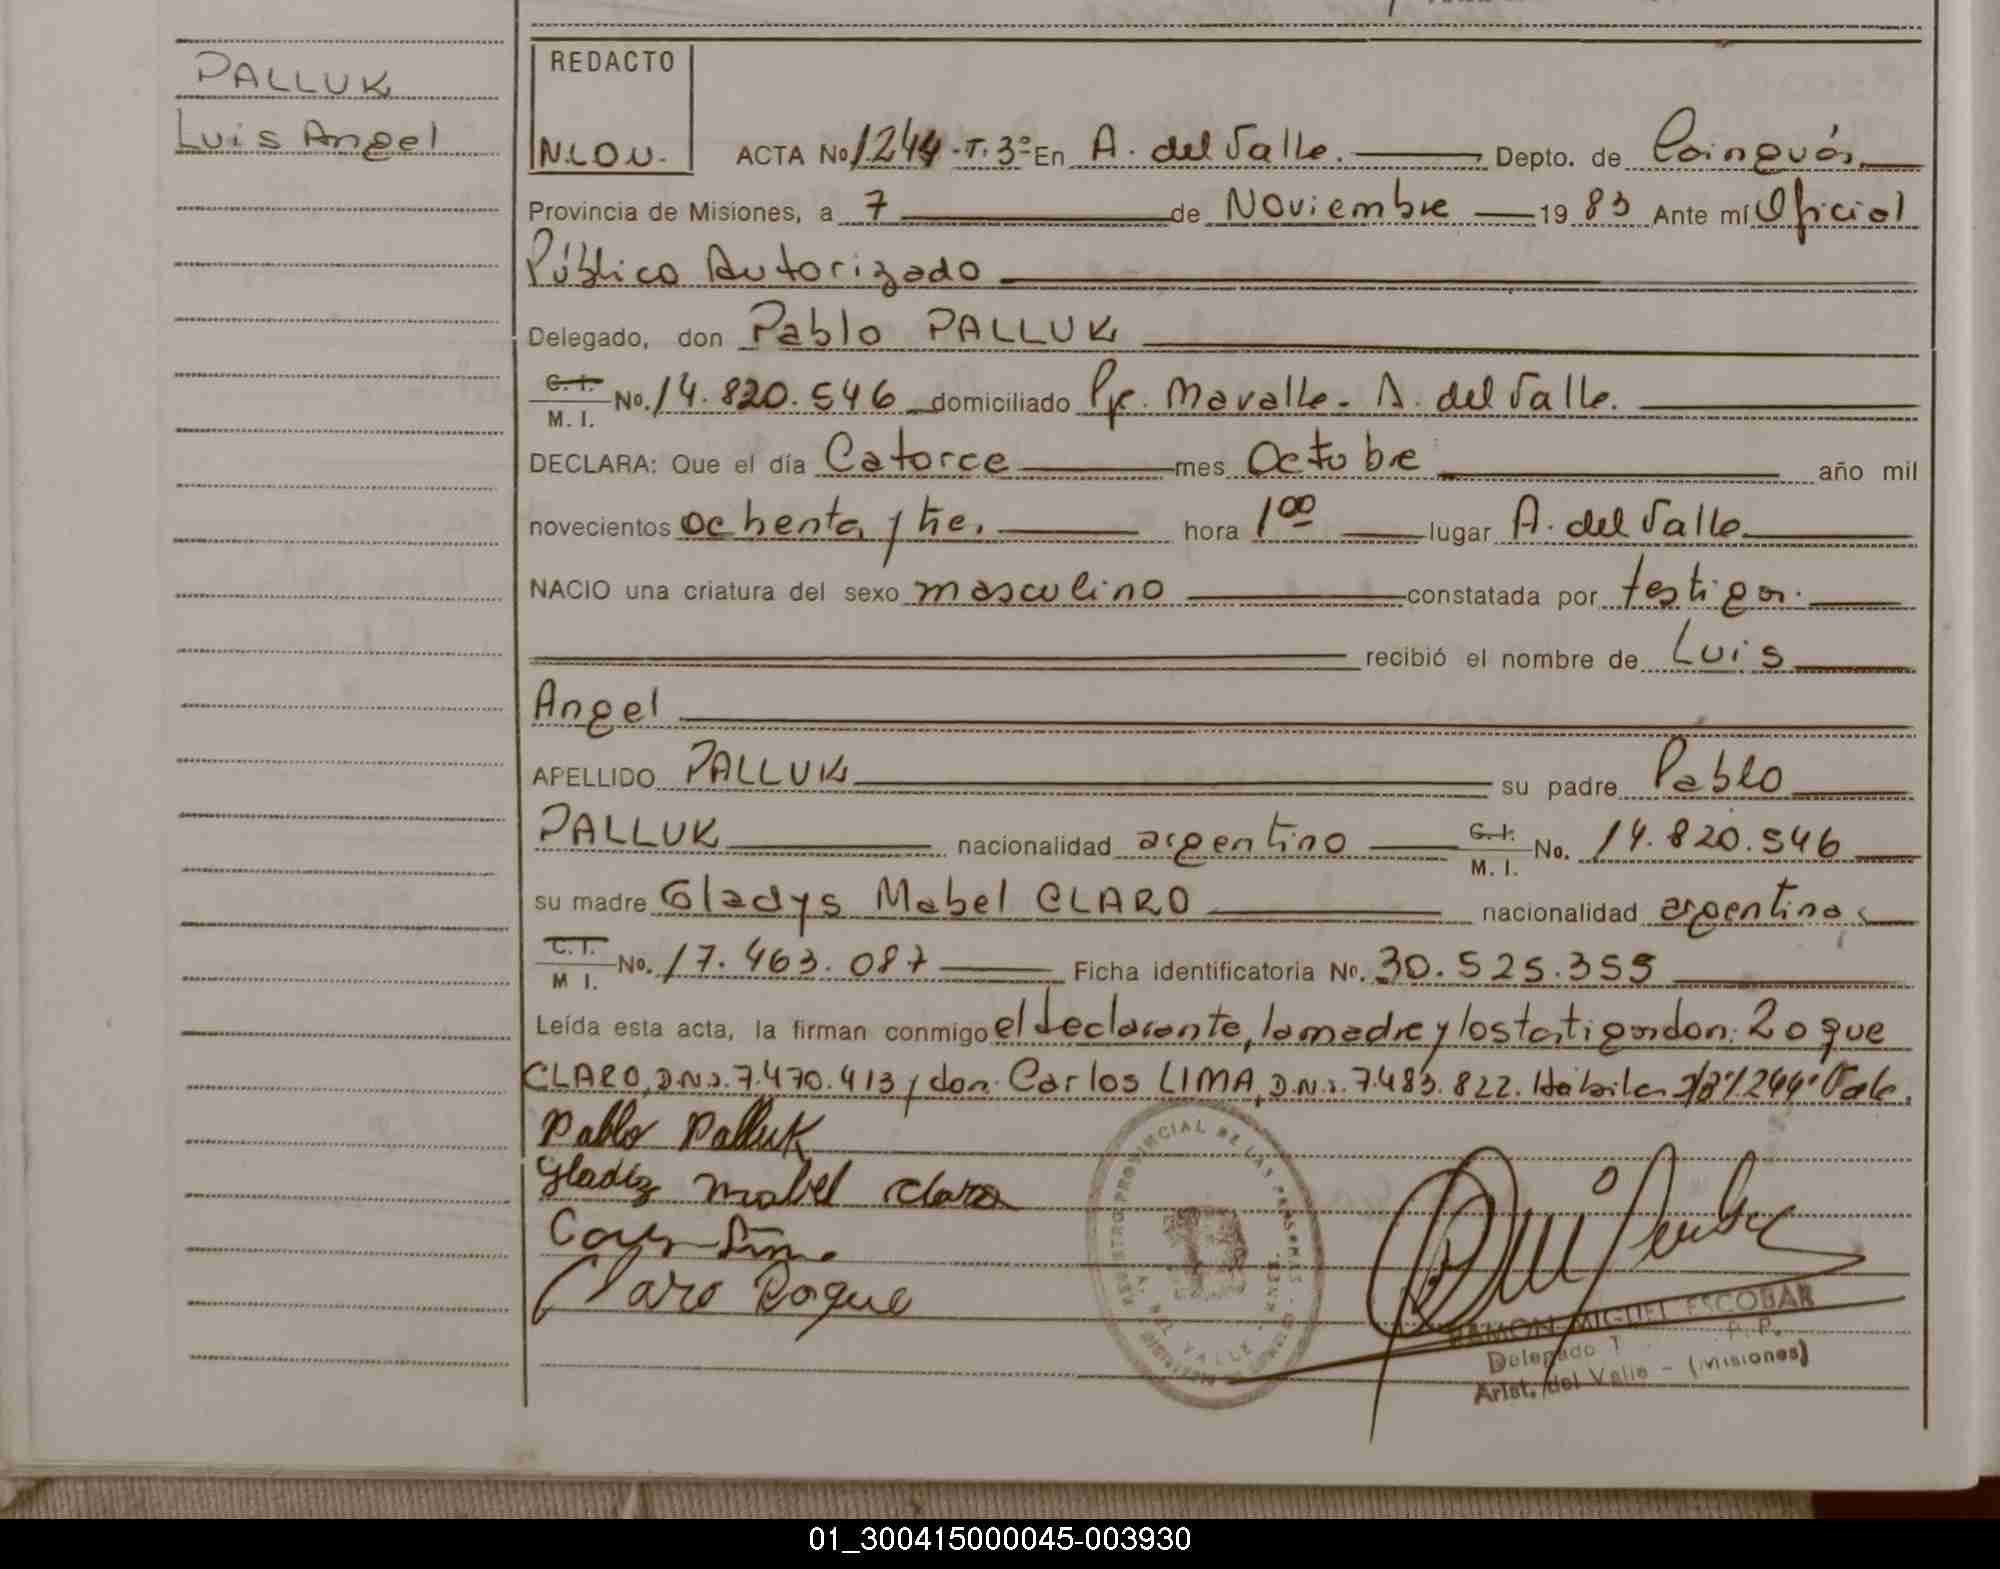 PALLUK
Luis Angel
REDACTO
N.L.O.U.
ACTA No 1244 - T. 3º En A. del Valle. Depto. de Cainguás
Provincia de Misiones, a 7 de Noviembre 19 83 Ante mí Oficial
Público Autorizado
Delegado, don Pablo PALLUK
C. I. / M. I. No. 14.820.546 domiciliado Pje. Mavalle - A. del Valle.
DECLARA: Que el día Catorce mes Octubre año mil
novecientos ochenta y tres hora 1 00 lugar A. del Valle
NACIO una criatura del sexo masculino constatada por testigos.
recibió el nombre de Luis
Angel
APELLIDO PALLUK su padre Pablo
PALLUK nacionalidad argentino C. I. / M. I. No. 14.820.546
su madre Gladys Mabel CLARO nacionalidad argentina
C. I. / M I. No. 17.463.087 Ficha identificatoria No. 30.525.355
Leída esta acta, la firman conmigo el declarante, la madre y los testigos don: Roque
CLARO, D.N.I. 7.470.413 y don: Carlos LIMA, D.N.I. 7.483.822. Hábiles 1244 Vale.
Pablo Palluk
Gladiz Mabel Claro
Claro Roque
REGISTRO PROVINCIAL DE LAS PERSONAS
A. DEL VALLE
RAMON MIGUEL ESCOBAR
Delegado
Arist. del Valle - (Misiones)
01_300415000045-003930